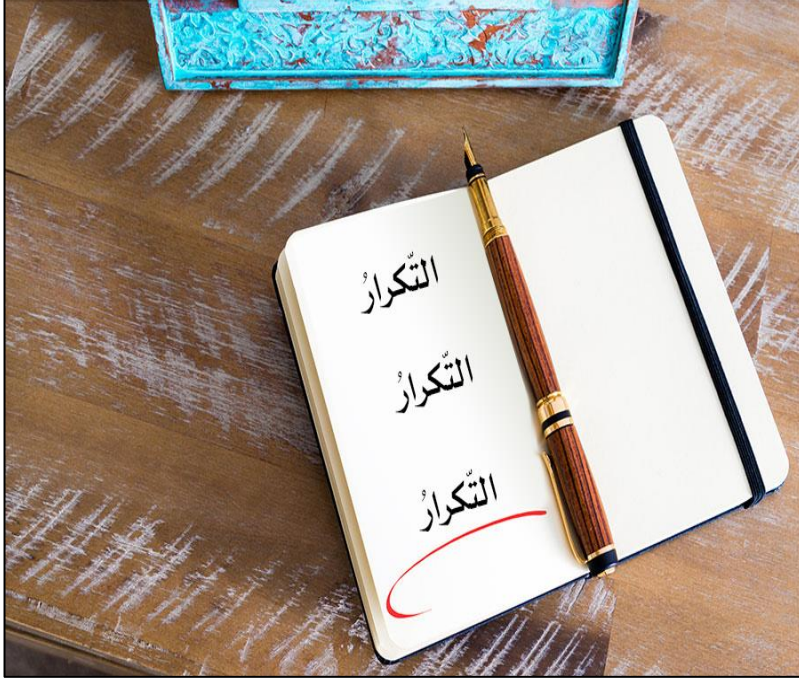 التّكرارُ
التّكرارُ
التّكرارُ